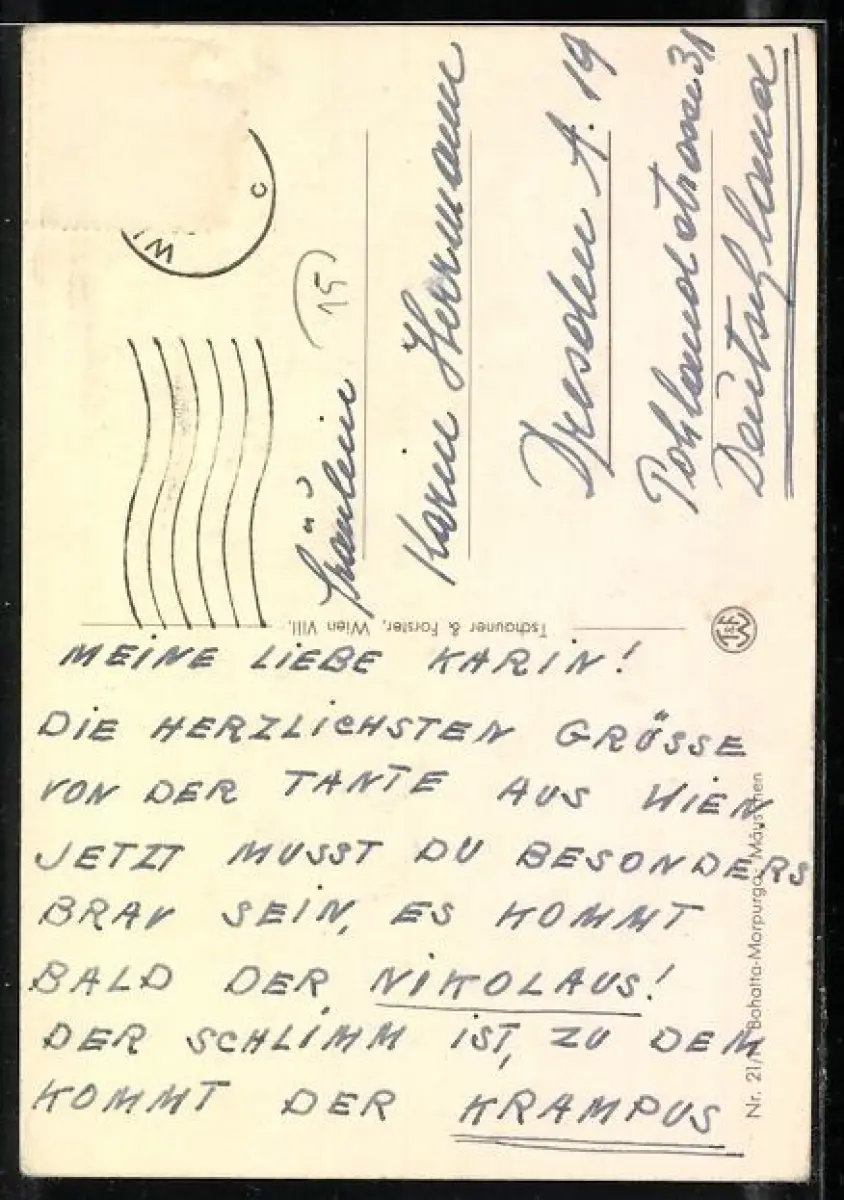 MEINE LIEBE KARIN!
DIE HERZLICHSTEN GRÜSSE
VON DER TANTE AUS WIEN.
JETZT MUSST DU BESONDERS
BRAV SEIN, ES KOMMT
BALD DER NIKOLAUS!
DER SCHLIMM IST, ZU DEM
KOMMT DER KRAMPUS
Fräulein
Karin Herrmann
Dresden A. 19
Pohlandstrasse 31
Deutschland
15
WI
C
Tschauner & Forster, Wien VIII.
Bohatta-Morpurgo, Mäuschen